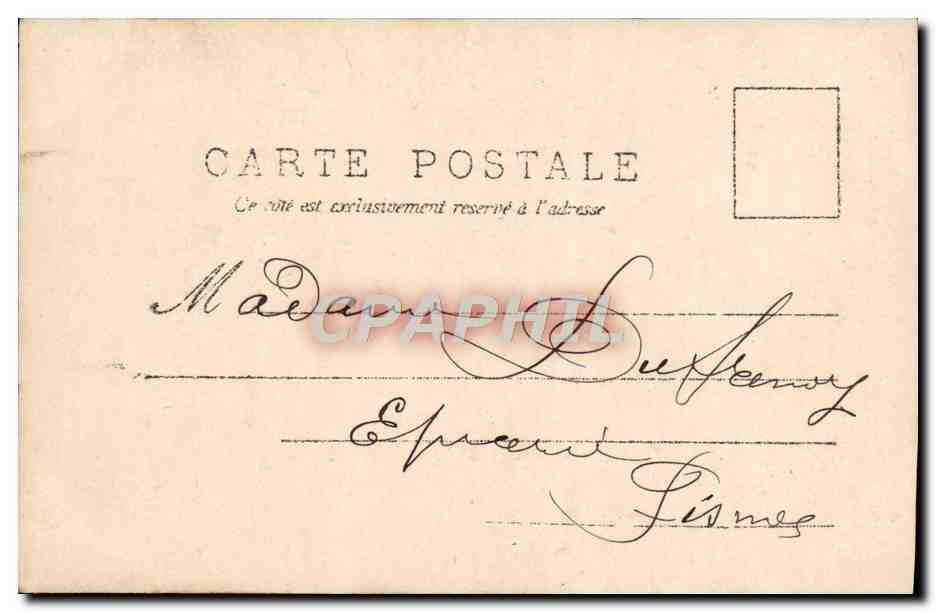 CARTE POSTALE
Ce côté est exclusivement reservé à l'adresse
Madame
CPAPHIL
Dufrenoy
Fismes